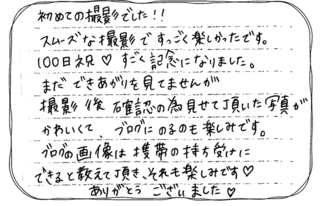 初めての撮影でした!!
スムーズな撮影ですっごく楽しかったです。
100日祝♡すごく記念になりました。
まだできあがりを見てませんが
撮影後確認の為見せて頂いた写真が
かわいくて、ブログにのるのも楽しみです。
ブログの画像は携帯の待ち受けに
できると教えて頂き、それも楽しみです♡
ありがとうございました♡